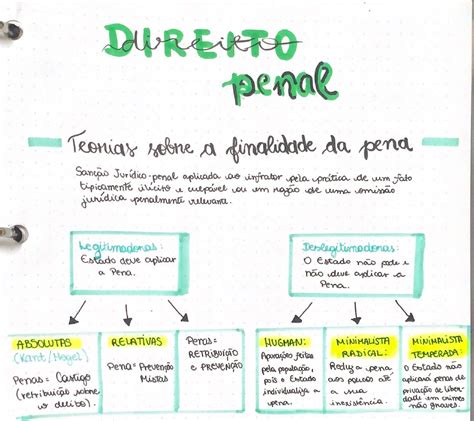 DIREITO
direito
penal
Teorias sobre a finalidade da pena
Sanção Jurídico-penal aplicada ao infrator pela prática de um fato
tipicamente ilícito e culpável ou em razão de uma omissão
jurídica penalmente relevante.
Legitimadoras:
Estado deve aplicar
a Pena.
Deslegitimadoras:
O Estado não pode e
não deve aplicar a
Pena.
ABSOLUTAS
(Kant/Hegel)
Penas= Castigo
(retribuição sobre
o delito).
RELATIVAS
Pena= Prevenção
Mistas
Penas=
RETRIBUIÇÃO
e PREVENÇÃO
HUGMAN:
Apurações feitas
pela população,
pois o Estado
individualiza a
pena.
MINIMALISTA
RADICAL:
Reduz a pena
aos poucos até
a sua
inexistência.
MINIMALISTA
TEMPERADA:
O Estado não
aplicará penas de
privação de liber-
dade em crimes
não graves.